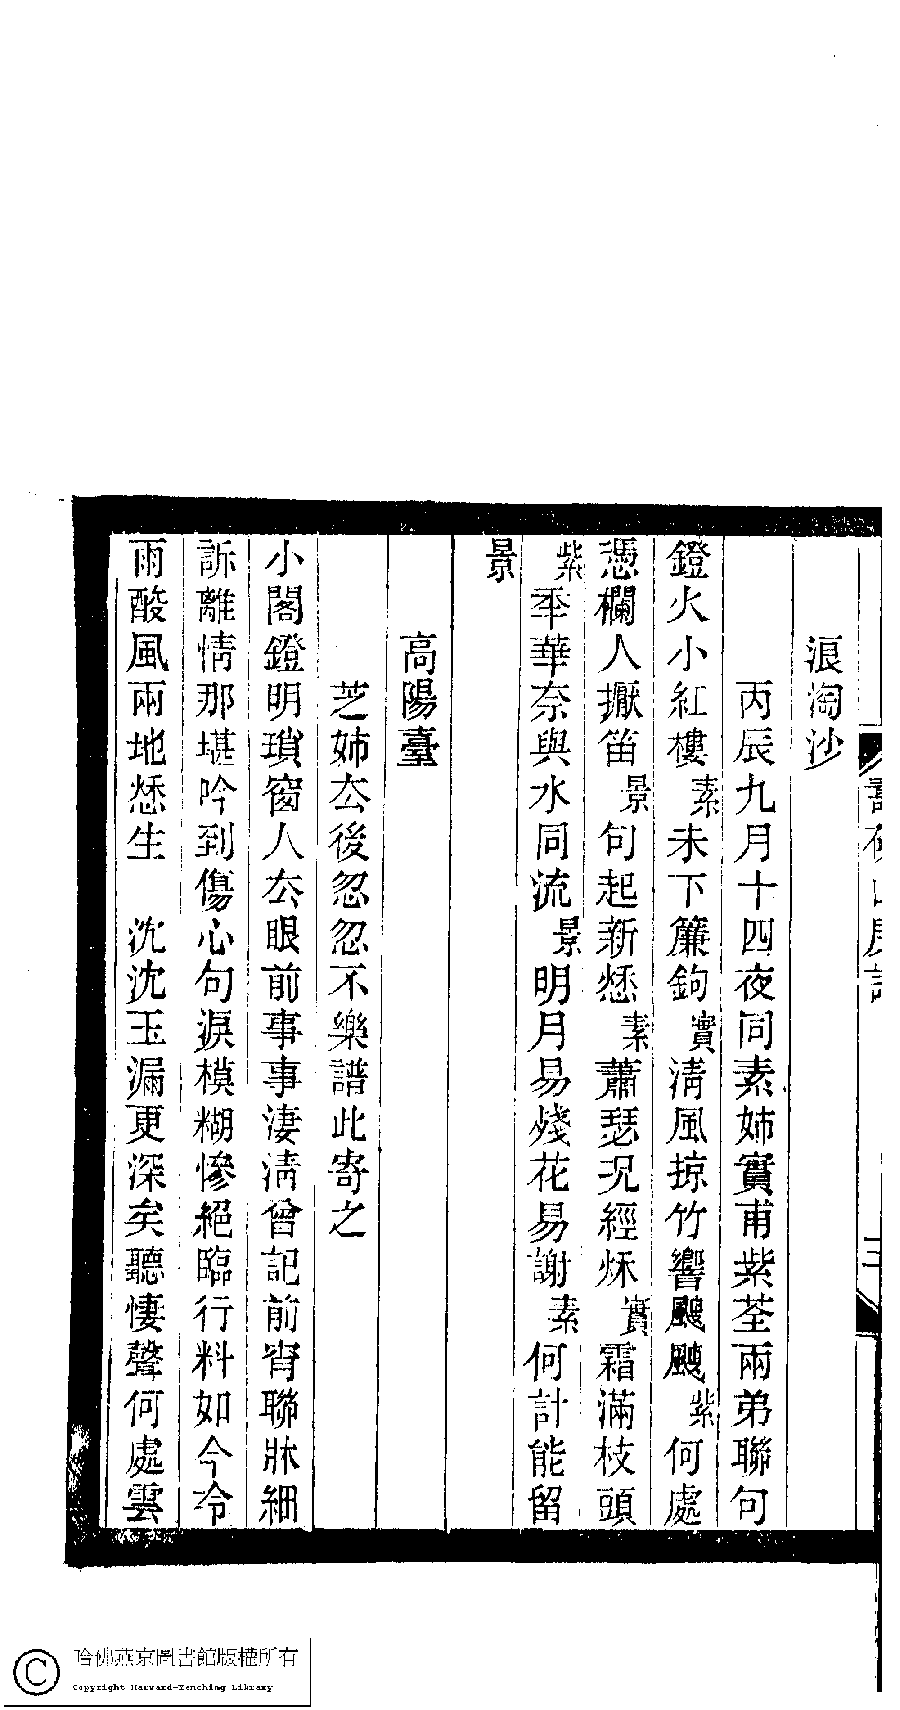 浪淘沙
丙辰九月十四夜同素姊實甫紫荃兩弟聯句
鐙火小紅樓素未下簾鉤實清風掠竹響颼颼紫何處
憑欄人擫笛景句起新愁素蕭瑟况經秌實霜滿枝頭
紫年華奈與水同流景明月易殘花易謝素何計能留
景
高陽臺
芝姊厺後忽忽不樂譜此寄之
小閣鐙明瑣窗人厺眼前事事淒清曾記前宵聯牀細
訴離情那堪吟到傷心句淚模糊慘絕臨行料如今冷
雨酸風兩地愁生　沈沈玉漏更深矣聽悽聲何處雲
三
哈佛燕京圖書館版權所有
Copyright Harvard-Yenching Library